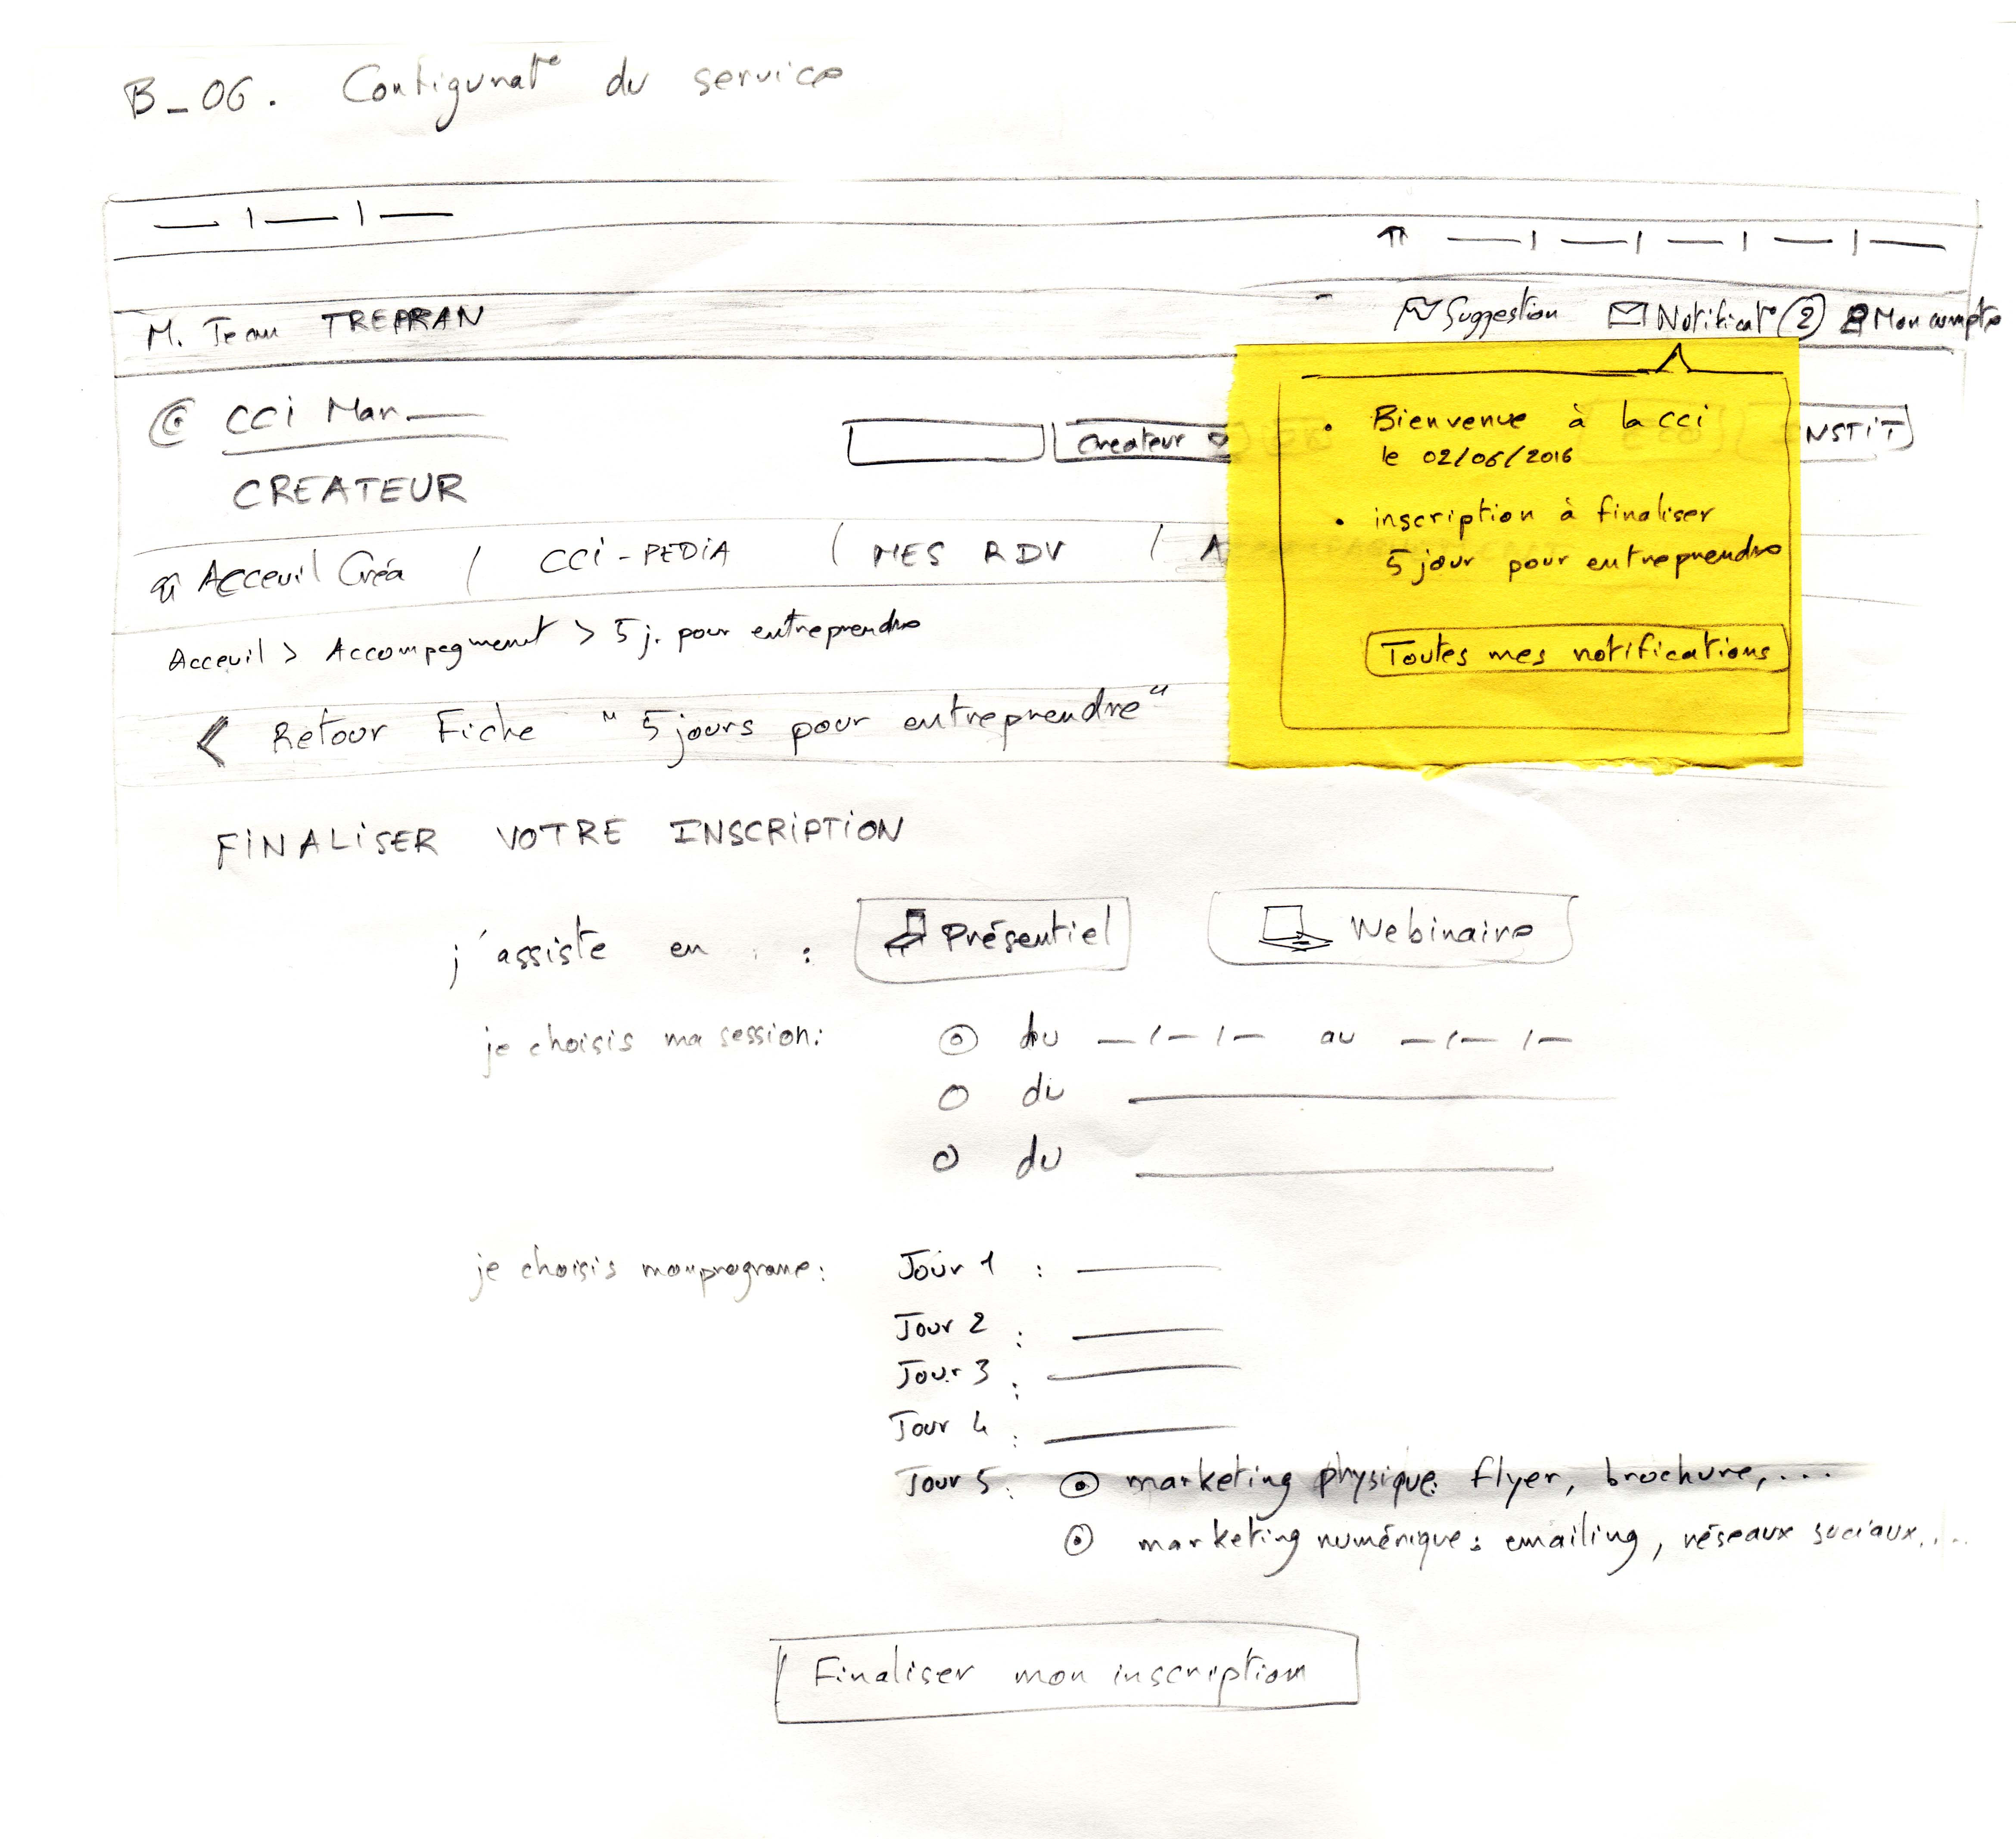 B_06. Configurat° du service
M. Jean TREPRAN
Suggestion
Notificat° (2)
Mon compte
@ CCi Mar
Createur
NSTiT
CREATEUR
Acceuil Créa / CCi-PEDiA / MES RDV / A
Acceuil > Accompagment > 5 j. pour entreprendre
< Retour Fiche "5 jours pour entreprendre"
• Bienvenue à la cci
le 02/06/2016
• inscription à finaliser
5 jour pour entreprendre
Toutes mes notifications
FiNALiSER VOTRE INSCRiPTiON
j'assiste en : Présentiel Webinaire
je choisis ma session: du au
du
du
je choisis mon programe: Jour 1 :
Jour 2 :
Jour 3 :
Jour 4 :
Jour 5 : marketing physique: flyer, brochure,...
marketing numérique: emailing, réseaux sociaux....
Finaliser mon inscription